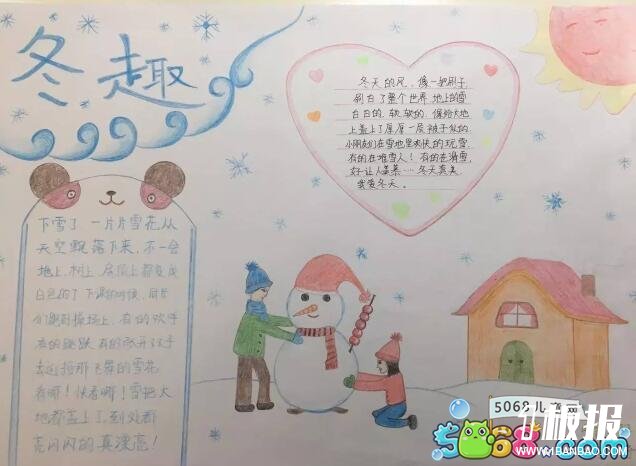 冬趣
冬天的风，像一把刷子
刷白了整个世界，地上的雪
白白的，软软的，像给大地
上盖上了厚厚一层被子似的。
小朋友们在雪地里爽快的玩雪，
有的在堆雪人！有的在滑雪，
好让人羡慕……冬天真美
我爱冬天。
下雪了，一片片雪花从
天空飘落下来，不一会
地上，树上，房顶上都变成
白色的了，下课的时候，同学
们跑到操场上，有的欢呼
有的跳跃，有的张开双手
去迎接那飞舞的雪花
看哪！快看哪！雪把大
地都盖上了，到处都
亮闪闪的真漂亮！
5068儿童网
5068.com
板报
WWW.1BANBAO.COM